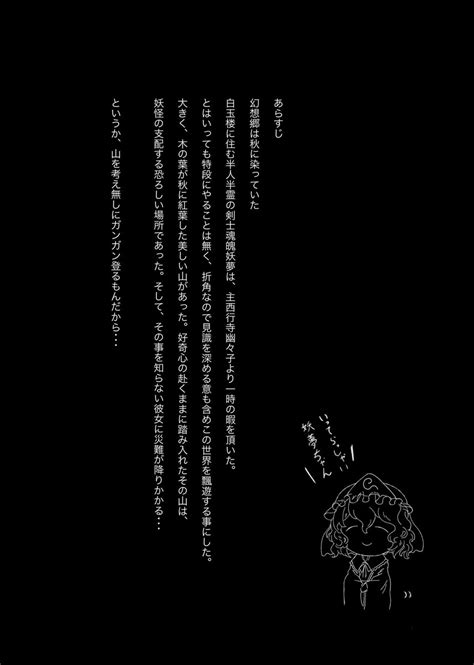 あらすじ
幻想郷は秋に染っていた
白玉楼に住む半人半霊の剣士魂魄妖夢は、主西行寺幽々子より一時の暇を頂いた。
とはいっても特段にやることは無く、折角なので見識を深める意も含めこの世界を飄遊する事にした。
大きく、木の葉が秋に紅葉した美しい山があった。好奇心の赴くままに踏み入れたその山は、
妖怪の支配する恐ろしい場所であった。そして、その事を知らない彼女に災難が降りかかる・・・
というか、山を考え無しにガンガン登るもんだから・・・
いってらっしゃい
妖夢ちゃん